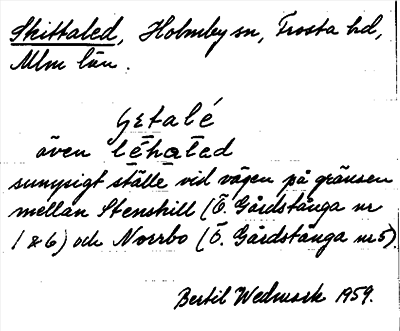 Skittaled, Holmby sn, Frosta hd,
Mlm län.
även
sumpigt ställe vid vägen på gränsen
mellan Stenshill (Ö. Gårdstånga nr
1 & 6) och Norrbo (Ö. Gårdstånga nr 5).
Bertil Wedmark 1959.